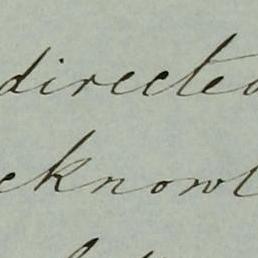 directed
cknowl